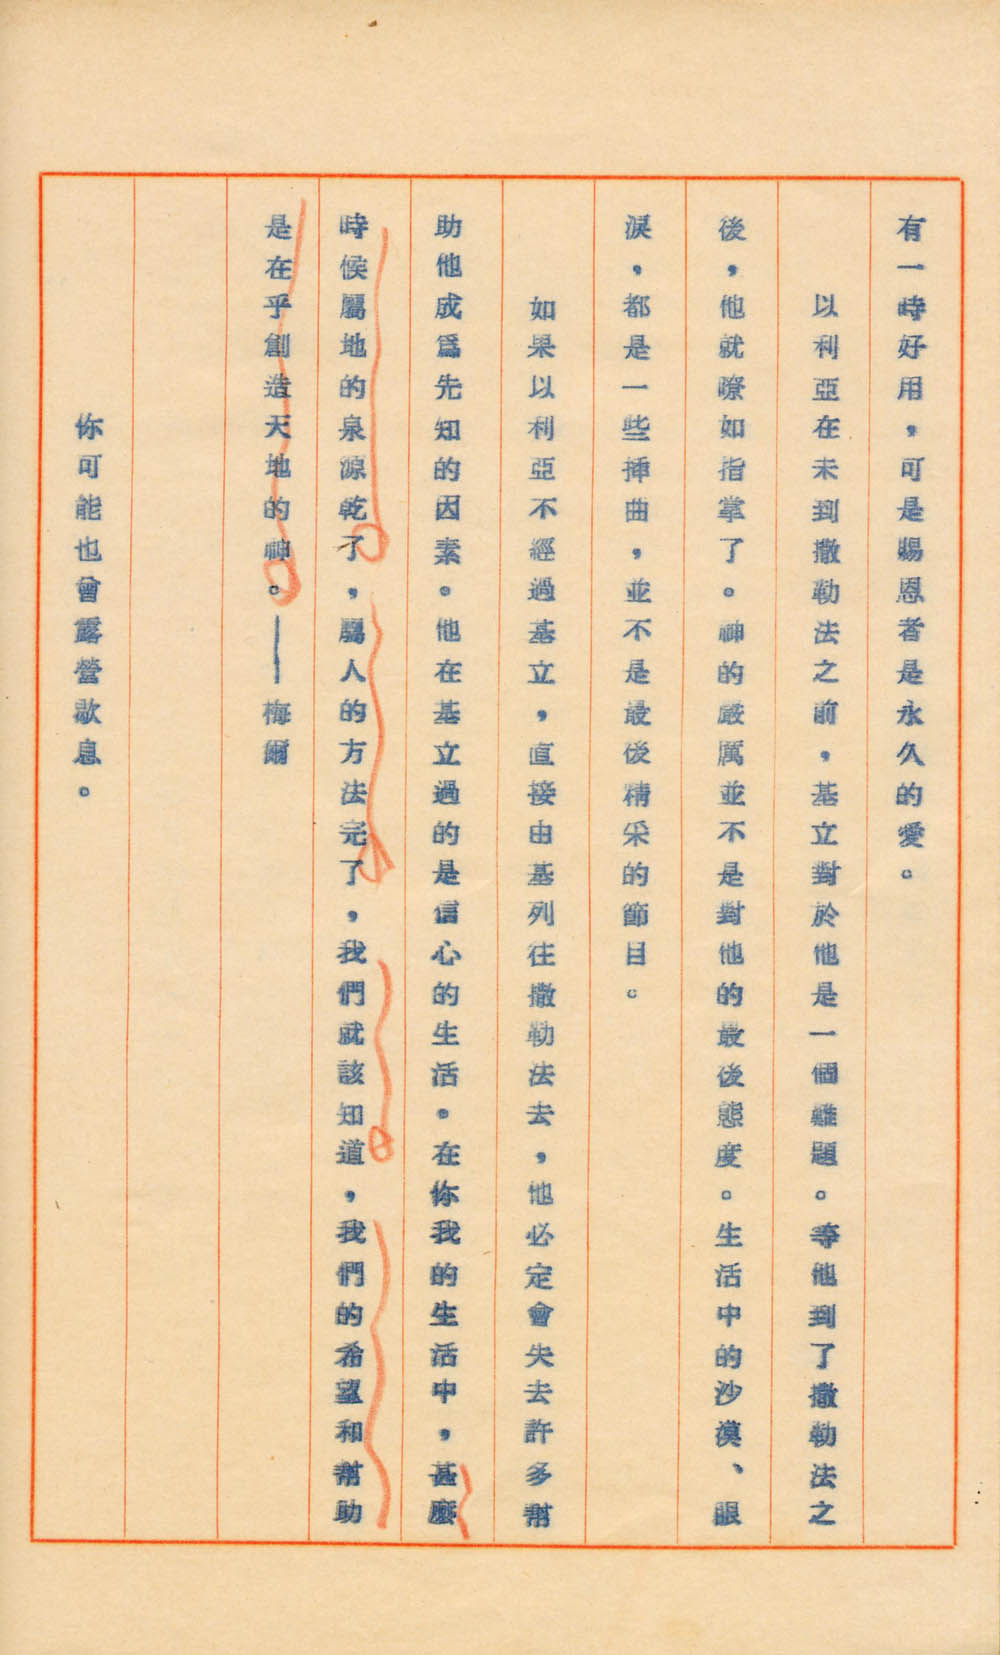 有一時好用，可是賜恩者是永久的愛。
以利亞在未到撒勒法之前，基立對於他是一個難題。等他到了撒勒法之
後，他就瞭如指掌了。神的嚴厲並不是對他的最後態度。生活中的沙漠、眼
淚，都是一些揷曲，並不是最後精采的節目。
如果以利亞不經過基立，直接由基列往撒勒法去，他必定會失去許多幫
助他成爲先知的因素。他在基立過的是信心的生活。在你我的生活中，甚麼
時侯屬地的泉源乾了，屬人的方法完了，我們就該知道，我們的希望和幫助
是在乎創造天地的神。——梅爾
你可能也曾露營歇息。